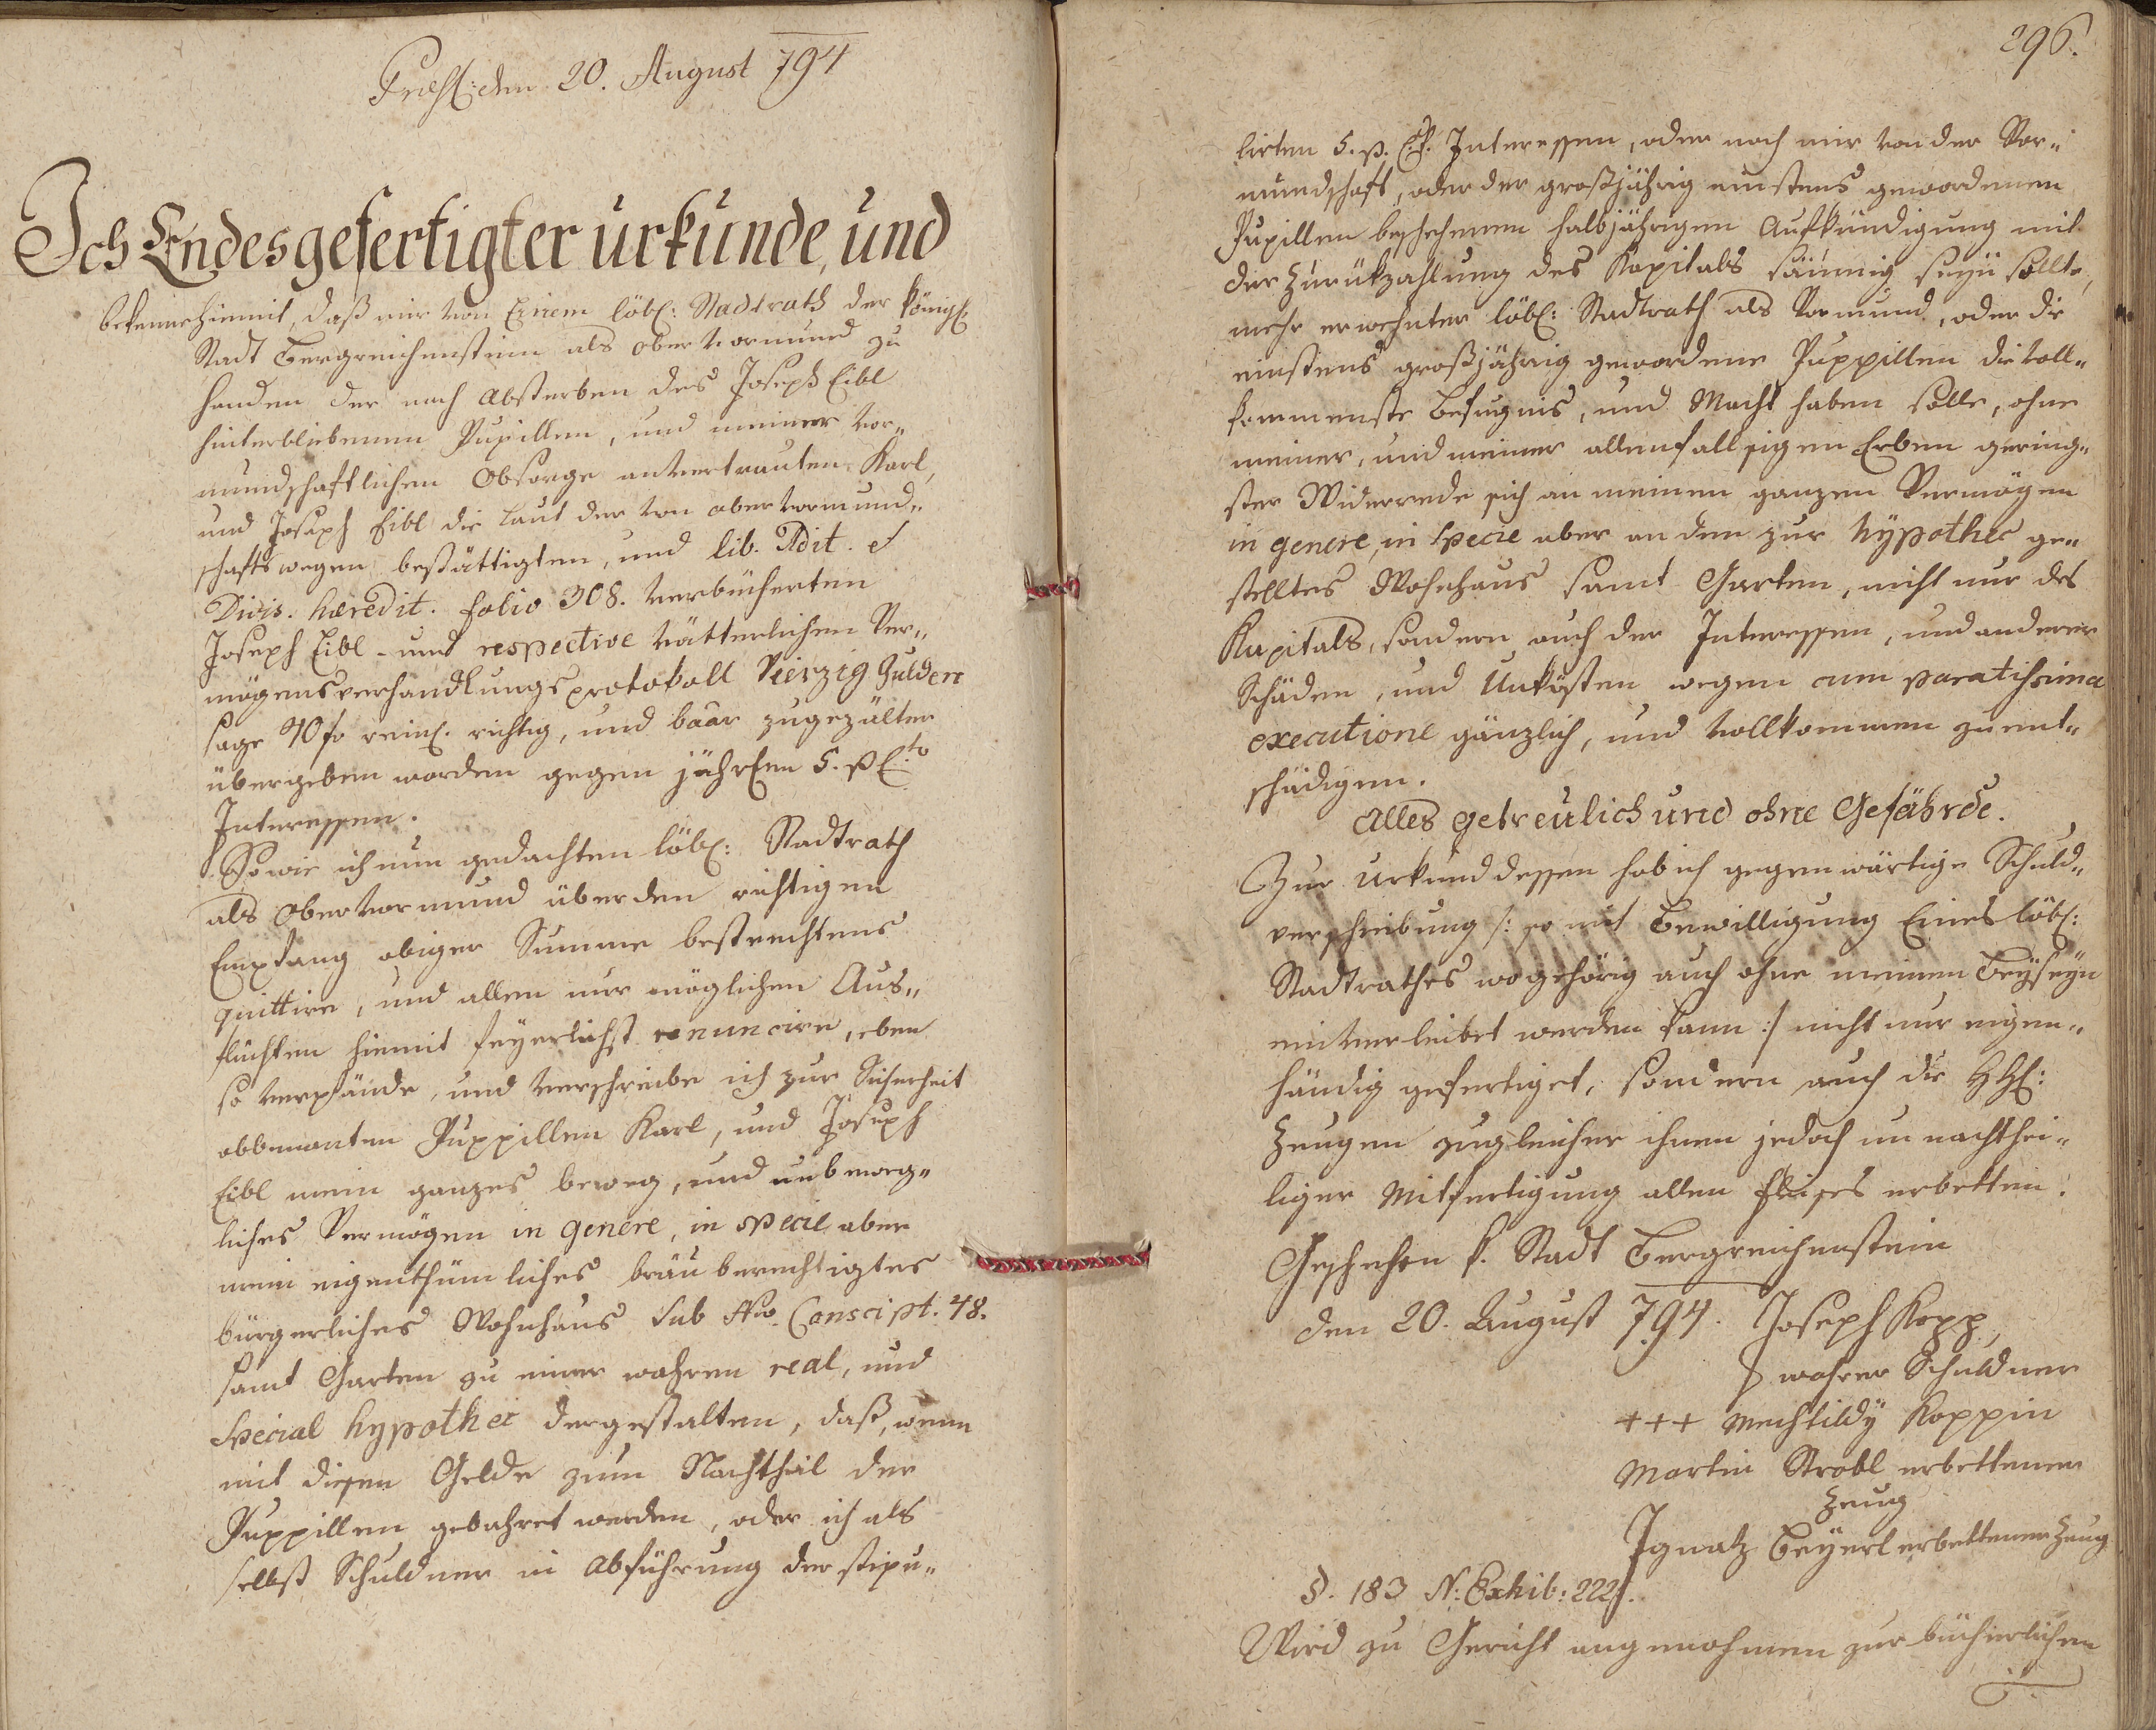 Præs: den 20. August 794
Ich Endesgefertigter urkunde, und
bekenne hiemit, daß mir von Einem löbl: Stadtrath der königl:
Stadt Bergreichenstein als obervormund zu
handen der nach Absterben des Joseph Eibl
hinterbliebenen Pupillen, und meiner vor„
mundschaftlichen Obsorge anvertrauten Karl,
und Joseph Eibl die laut der von obervormund„
schafts wegen bestättigten, und lib. Adit. et
Divis. hæredit. folio 308. verbücherten
Joseph Eibl- und respective vätterlichen Ver„
mögensverhandlungsprotokoll Vierzig Gulden
sage 40 fr reinl. richtig, und baar zugezälter
übergeben worden gegen jährlen 5. p Cto
Interessen.
So wie ich nun gedachten löbl: Stadtrath
als obervormund über den richtigen
Empfang obiger Summe bestrechtens
quittire, und allen nur möglichen Aus„
flüchten hiemit feyerlichst renuncire, eben
so verpfände, und verschreibe ich zur Sicherheit
obbenanten Puppillen Karl, und Joseph
Eibl mein ganzes beweg, und unbeweg„
liches Vermögen in genere, in specie aber
mein eigenthümliches bräuberechtigtes
bürgerliches Wohnhaus sub Nro. Conscipt. 48.
samt Garten zu einer wahren real, und
Special hypothec dergestalten, daß, wenn
mit diesen Gelde zum Nachtheil der
Puppillen gebahret werden, oder ich als
selbst Schuldner in Abführung der stipu„
296.
lirten 5. p. Ct. Interessen, oder nach mir von der Vor„
mundschaft, oder der großjährig einstens gewordenen
Pupillen beschehenen halbjährigen Aufkündigung mit
der Zurükzahlung des Kapitals säumig seyn sollte,
mehr erwehnter löbl: Stadtrath als Vormund, oder die
einstens großjährig gewordene Puppillen die voll„
kommenste Befugnis, und Macht haben solle, ohne
meiner, und meiner allenfallsigen Erben gering„
ster Widerrede sich an meinen ganzen Vermögen
in genere, in Specie aber an dem zur hypothec ge„
stelltes Wohnhaus samt Garten, nicht nur des
Kapitals, sondern auch der Interessen, und anderer
Schäden, und Unkösten wegen cum paratissima
executione gänzlich, und vollkommen zu ent„
schädigen.
Alles getreulich und ohne Gefährde.
Zur Urkund dessen hab ich gegenwärtige Schuld„
verschreibung /: so mit Bewilligung Eines löbl:
Stadtrathes wo gehörig auch ohne meinem Beyseyn
einverleibet werden kann :/ nicht nur eigen„
händig gefertiget, sondern auch die HHl:
Zeugen zugleicher ihnen jedoch un nachthei„
liger Mitfertigung allen Fleises erbetten.
Geschehen k. Stadt Bergreichenstein
den 20. August 794. Joseph Kopp
wahrer Schuldner
+++ Mechtildy Koppin
Martin Strobl erbettener
Zeug
Ignatz Beyerl erbettener Zeug
§. 183 N: Exhib: 222.
Wird zu Gericht angenohmen zur bücherlichen